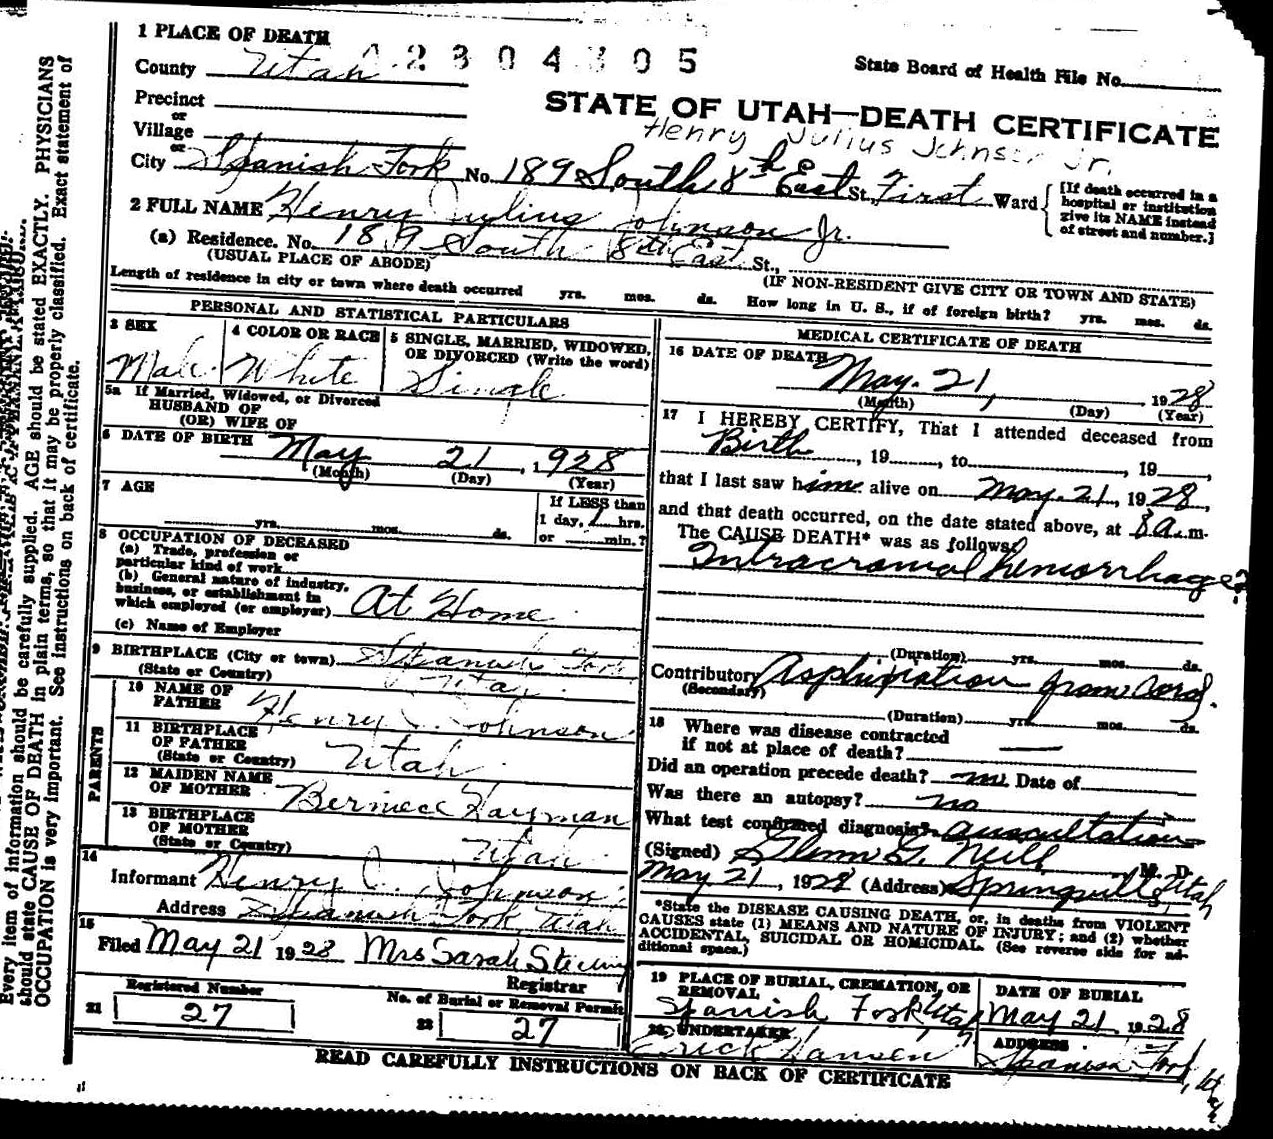 1 PLACE OF DEATH
County Utah
2304305
State Board of Health File No.
Precinct
or
Village
or
STATE OF UTAH—DEATH CERTIFICATE
Henry Julius Johnson Jr.
City Spanish Fork No. 189 South 8th East St., First Ward
[If death occurred in a
hospital or institution
give its NAME instead
of street and number.]
2 FULL NAME Henry Julius Johnson Jr.
(a) Residence. No. 189 South 8th East St.,
(USUAL PLACE OF ABODE)
(IF NON-RESIDENT GIVE CITY OR TOWN AND STATE)
Length of residence in city or town where death occurred yrs. mos. ds. How long in U. S., if of foreign birth? yrs. mos. ds.
PERSONAL AND STATISTICAL PARTICULARS
3 SEX
Male
4 COLOR OR RACE
White
5 SINGLE, MARRIED, WIDOWED,
OR DIVORCED (Write the word)
Single
5a If Married, Widowed, or Divorced
HUSBAND OF
(OR) WIFE OF
6 DATE OF BIRTH May 21, 1928
(Month) (Day) (Year)
7 AGE
yrs. mos. ds.
If LESS than
1 day, hrs.
or min.?
8 OCCUPATION OF DECEASED
(a) Trade, profession or
particular kind of work
(b) General nature of industry,
business, or establishment in
which employed (or employer) At Home
(c) Name of Employer
9 BIRTHPLACE (City or town) Spanish Fork
(State or Country) Utah
PARENTS
10 NAME OF
FATHER Henry J. Johnson
11 BIRTHPLACE
OF FATHER
(State or Country) Utah
12 MAIDEN NAME
OF MOTHER Berniece Hayman
13 BIRTHPLACE
OF MOTHER
(State or Country) Utah
14
Informant Henry J. Johnson
Address Spanish Fork, Utah
15
Filed May 21 1928 Mrs Sarah
Registrar
21 Registered Number
27
22 No. of Burial or Removal Permit
27
MEDICAL CERTIFICATE OF DEATH
16 DATE OF DEATH
May. 21, 1928
(Month) (Day) (Year)
17 I HEREBY CERTIFY, That I attended deceased from
Birth, 19, to, 19,
that I last saw him alive on May. 21, 1928,
and that death occurred, on the date stated above, at 8 a.m.
The CAUSE DEATH* was as follows:
Intracranial hemorrhage?
(Duration) yrs. mos. ds.
Contributory from cord.
(Secondary)
(Duration) yrs. mos. ds.
18 Where was disease contracted
if not at place of death?
Did an operation precede death? no. Date of
Was there an autopsy? no
What test confirmed diagnosis? auscultation
(Signed) Glenn G. Neill M. D.
May 21, 1928 (Address) Springville, Utah
*State the DISEASE CAUSING DEATH, or, in deaths from VIOLENT
CAUSES state (1) MEANS AND NATURE OF INJURY; and (2) whether
ACCIDENTAL, SUICIDAL OR HOMICIDAL. (See reverse side for ad-
ditional space.)
19 PLACE OF BURIAL, CREMATION, OR
REMOVAL
Spanish Fork, Utah
DATE OF BURIAL
May 21 1928
20. UNDERTAKER
Erick Hansen
ADDRESS
Spanish Fork, Utah
READ CAREFULLY INSTRUCTIONS ON BACK OF CERTIFICATE
Every item of information should be carefully supplied. AGE should be stated EXACTLY. PHYSICIANS
should state CAUSE OF DEATH in plain terms, so that it may be properly classified. Exact statement of
OCCUPATION is very important. See instructions on back of certificate.